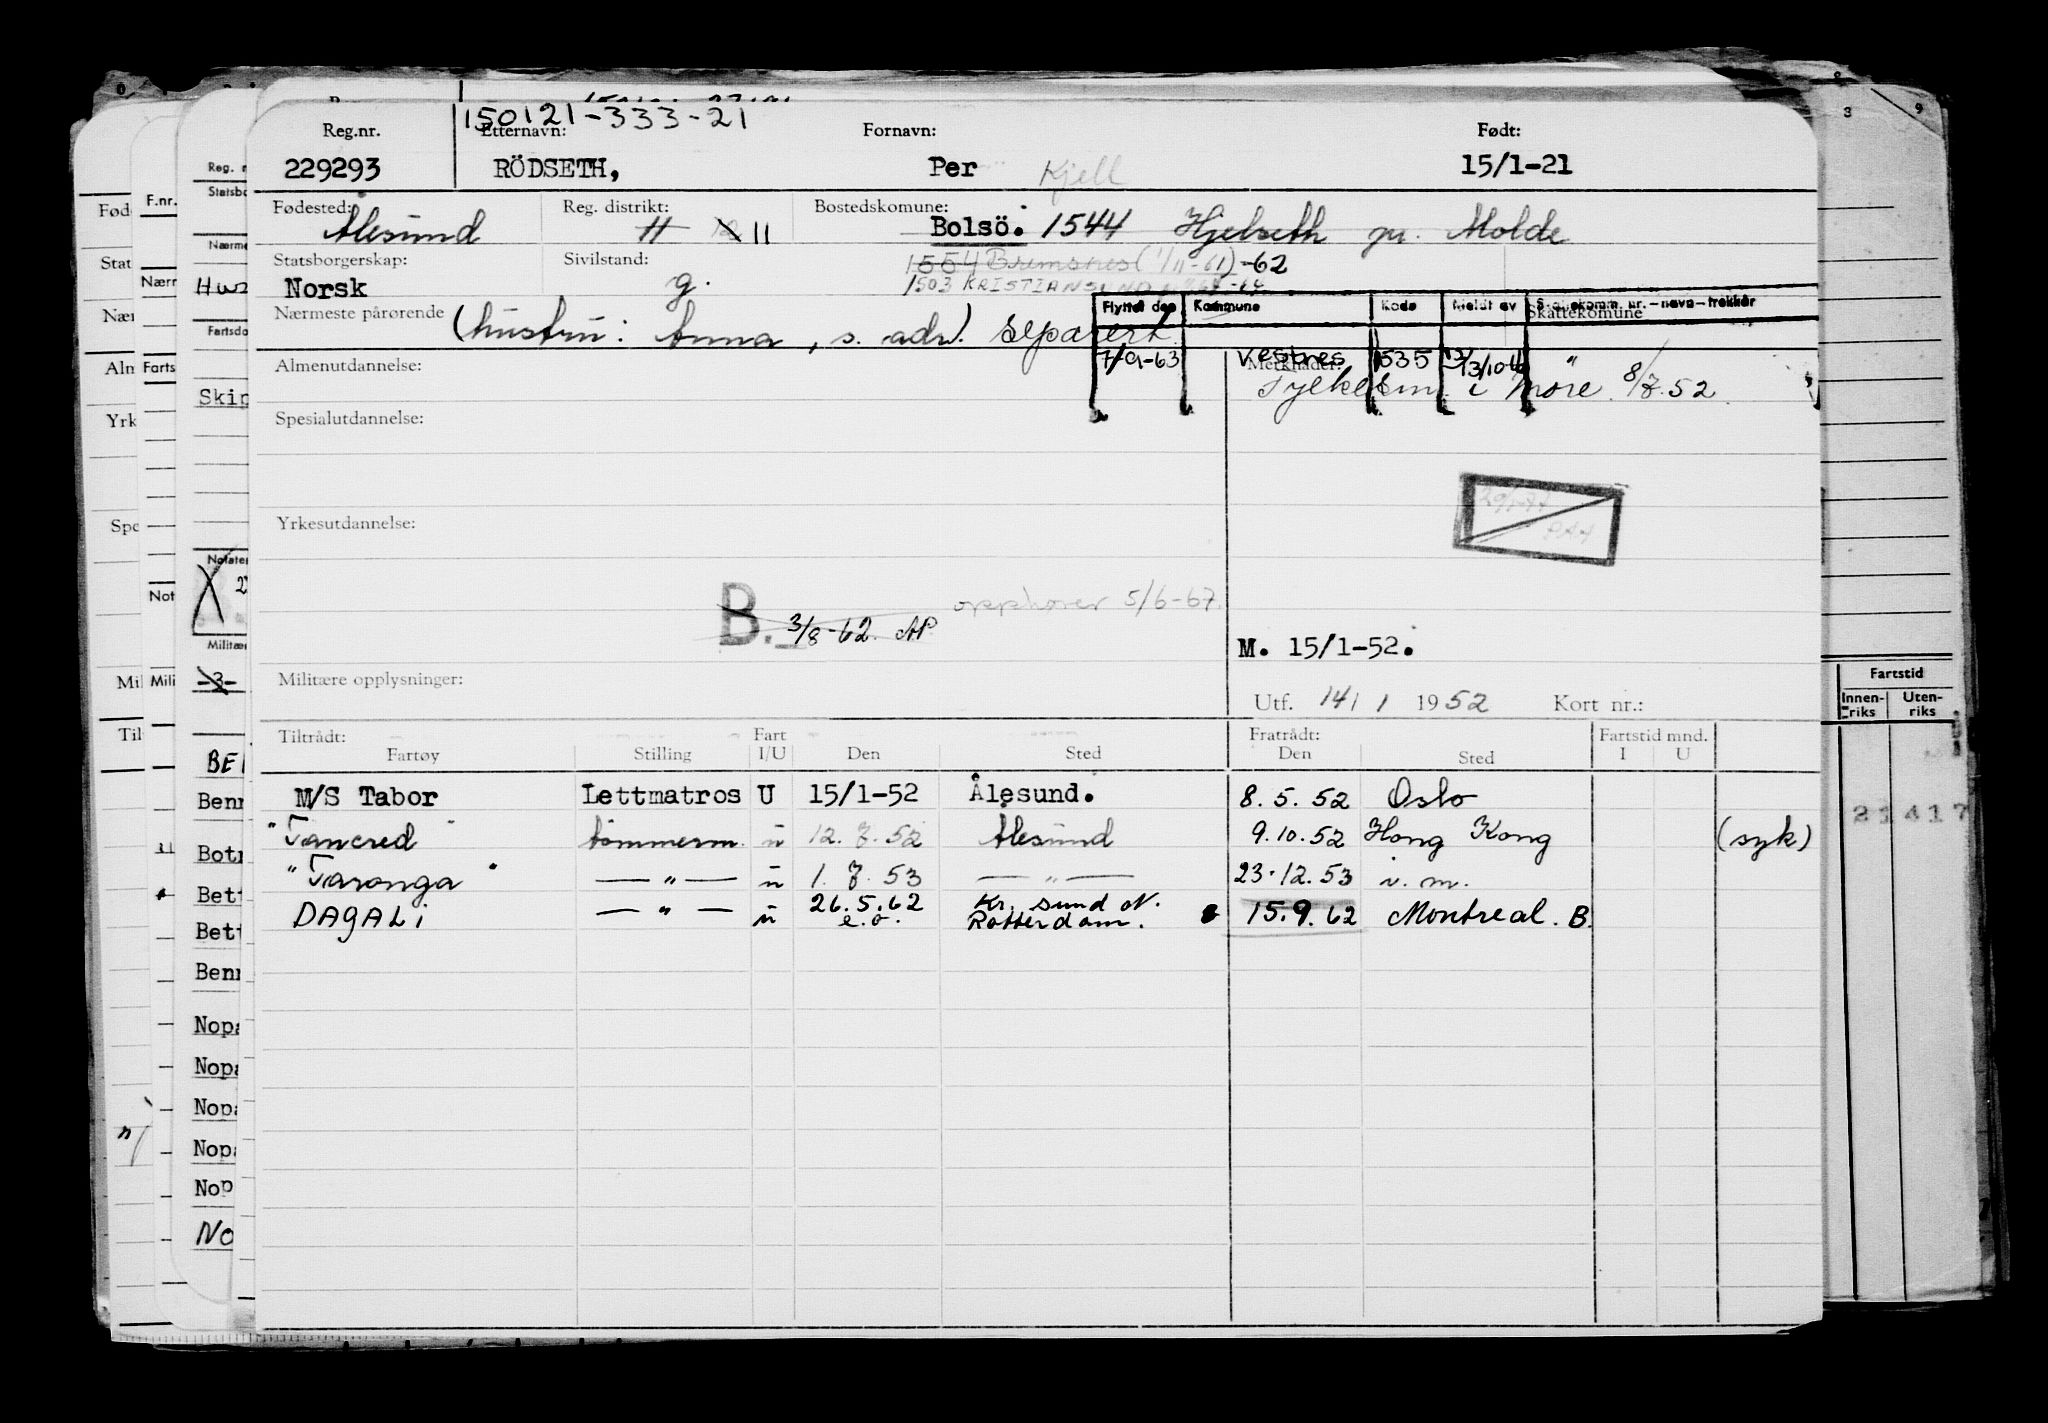 150121-333-21
Reg.nr. Etternavn: Fornavn: Født:
229293 RÖDSETH, Per Kjell 15/1-21
Fødested: Reg. distrikt: Bostedskomune:
Ålesund 11 11 Bolsö. 1544 Hjelseth pr. Molde
Statsborgerskap: Sivilstand: 1554 Bremsnes (1/11-61)-62
Norsk g. 1503 KRISTIANSUND
Flyttet den Kommune Kode Meldt av Skattekomm. nr. - navn - trekkår
Nærmeste pårørende (hustru: Anna, s. adr.) separert Skattekomune
7/9-63 Vestnes 1535 "
Almenutdannelse: Merknader:
Fylkeskm. i Møre. 8/7.52
Spesialutdannelse:
Yrkesutdannelse:
opphører 5/6-67.
B. 3/8-62. AP.
M. 15/1-52.
Militære opplysninger:
Utf. 14/1 1952 Kort nr.:
Tiltrådt: Fart Fratrådt: Fartstid mnd.
Fartøy Stilling I/U Den Sted Den Sted I U
M/S Tabor Lettmatros U 15/1-52 Ålesund. 8.5.52 Oslo
"Tancred" tømmerm. u 12.7.52 Ålesund 9.10.52 Hong Kong (syk)
"Taronga" — " — u 1.7.53 — " — 23.12.53 i.m.
DAGALi — " — u 26.5.62 Kr. sund N. 15.9.62 Montreal. B.
e.o. Rotterdam.
Fartstid
Innen-riks Uten-riks
21417